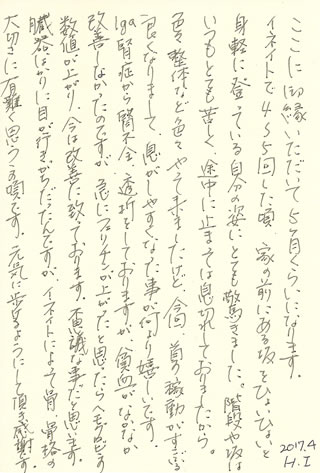 ここに御縁いただいて5ヶ月くらいになります。
イネイトで4〜5回した頃、家の前にある坂をひょいひょいと
身軽に登っている自分の姿にとても驚きました。階段や坂は
いつもとても苦しく、途中に止まっては息切れしておりましたから。
色々整体など色々やって来ましたけど、今回、首の稼動がすごく
良くなりまして、息がしやすくなった事が何より嬉しいです。
Iga腎症から腎不全、透析をしておりますが、貧血がなかなか
改善しなかったのですが、急にフェリチンが上がったと思ったらヘモグロビンの
数値が上がり、今は改善に致っております。不思議な事だと思います。
臓器ばかりに目が行きがちだったんですが、イネイトによって骨、骨格の
大切さに有難く思うこの頃です。元気に歩けるようにして頂き感謝です。
2017.4
H.I